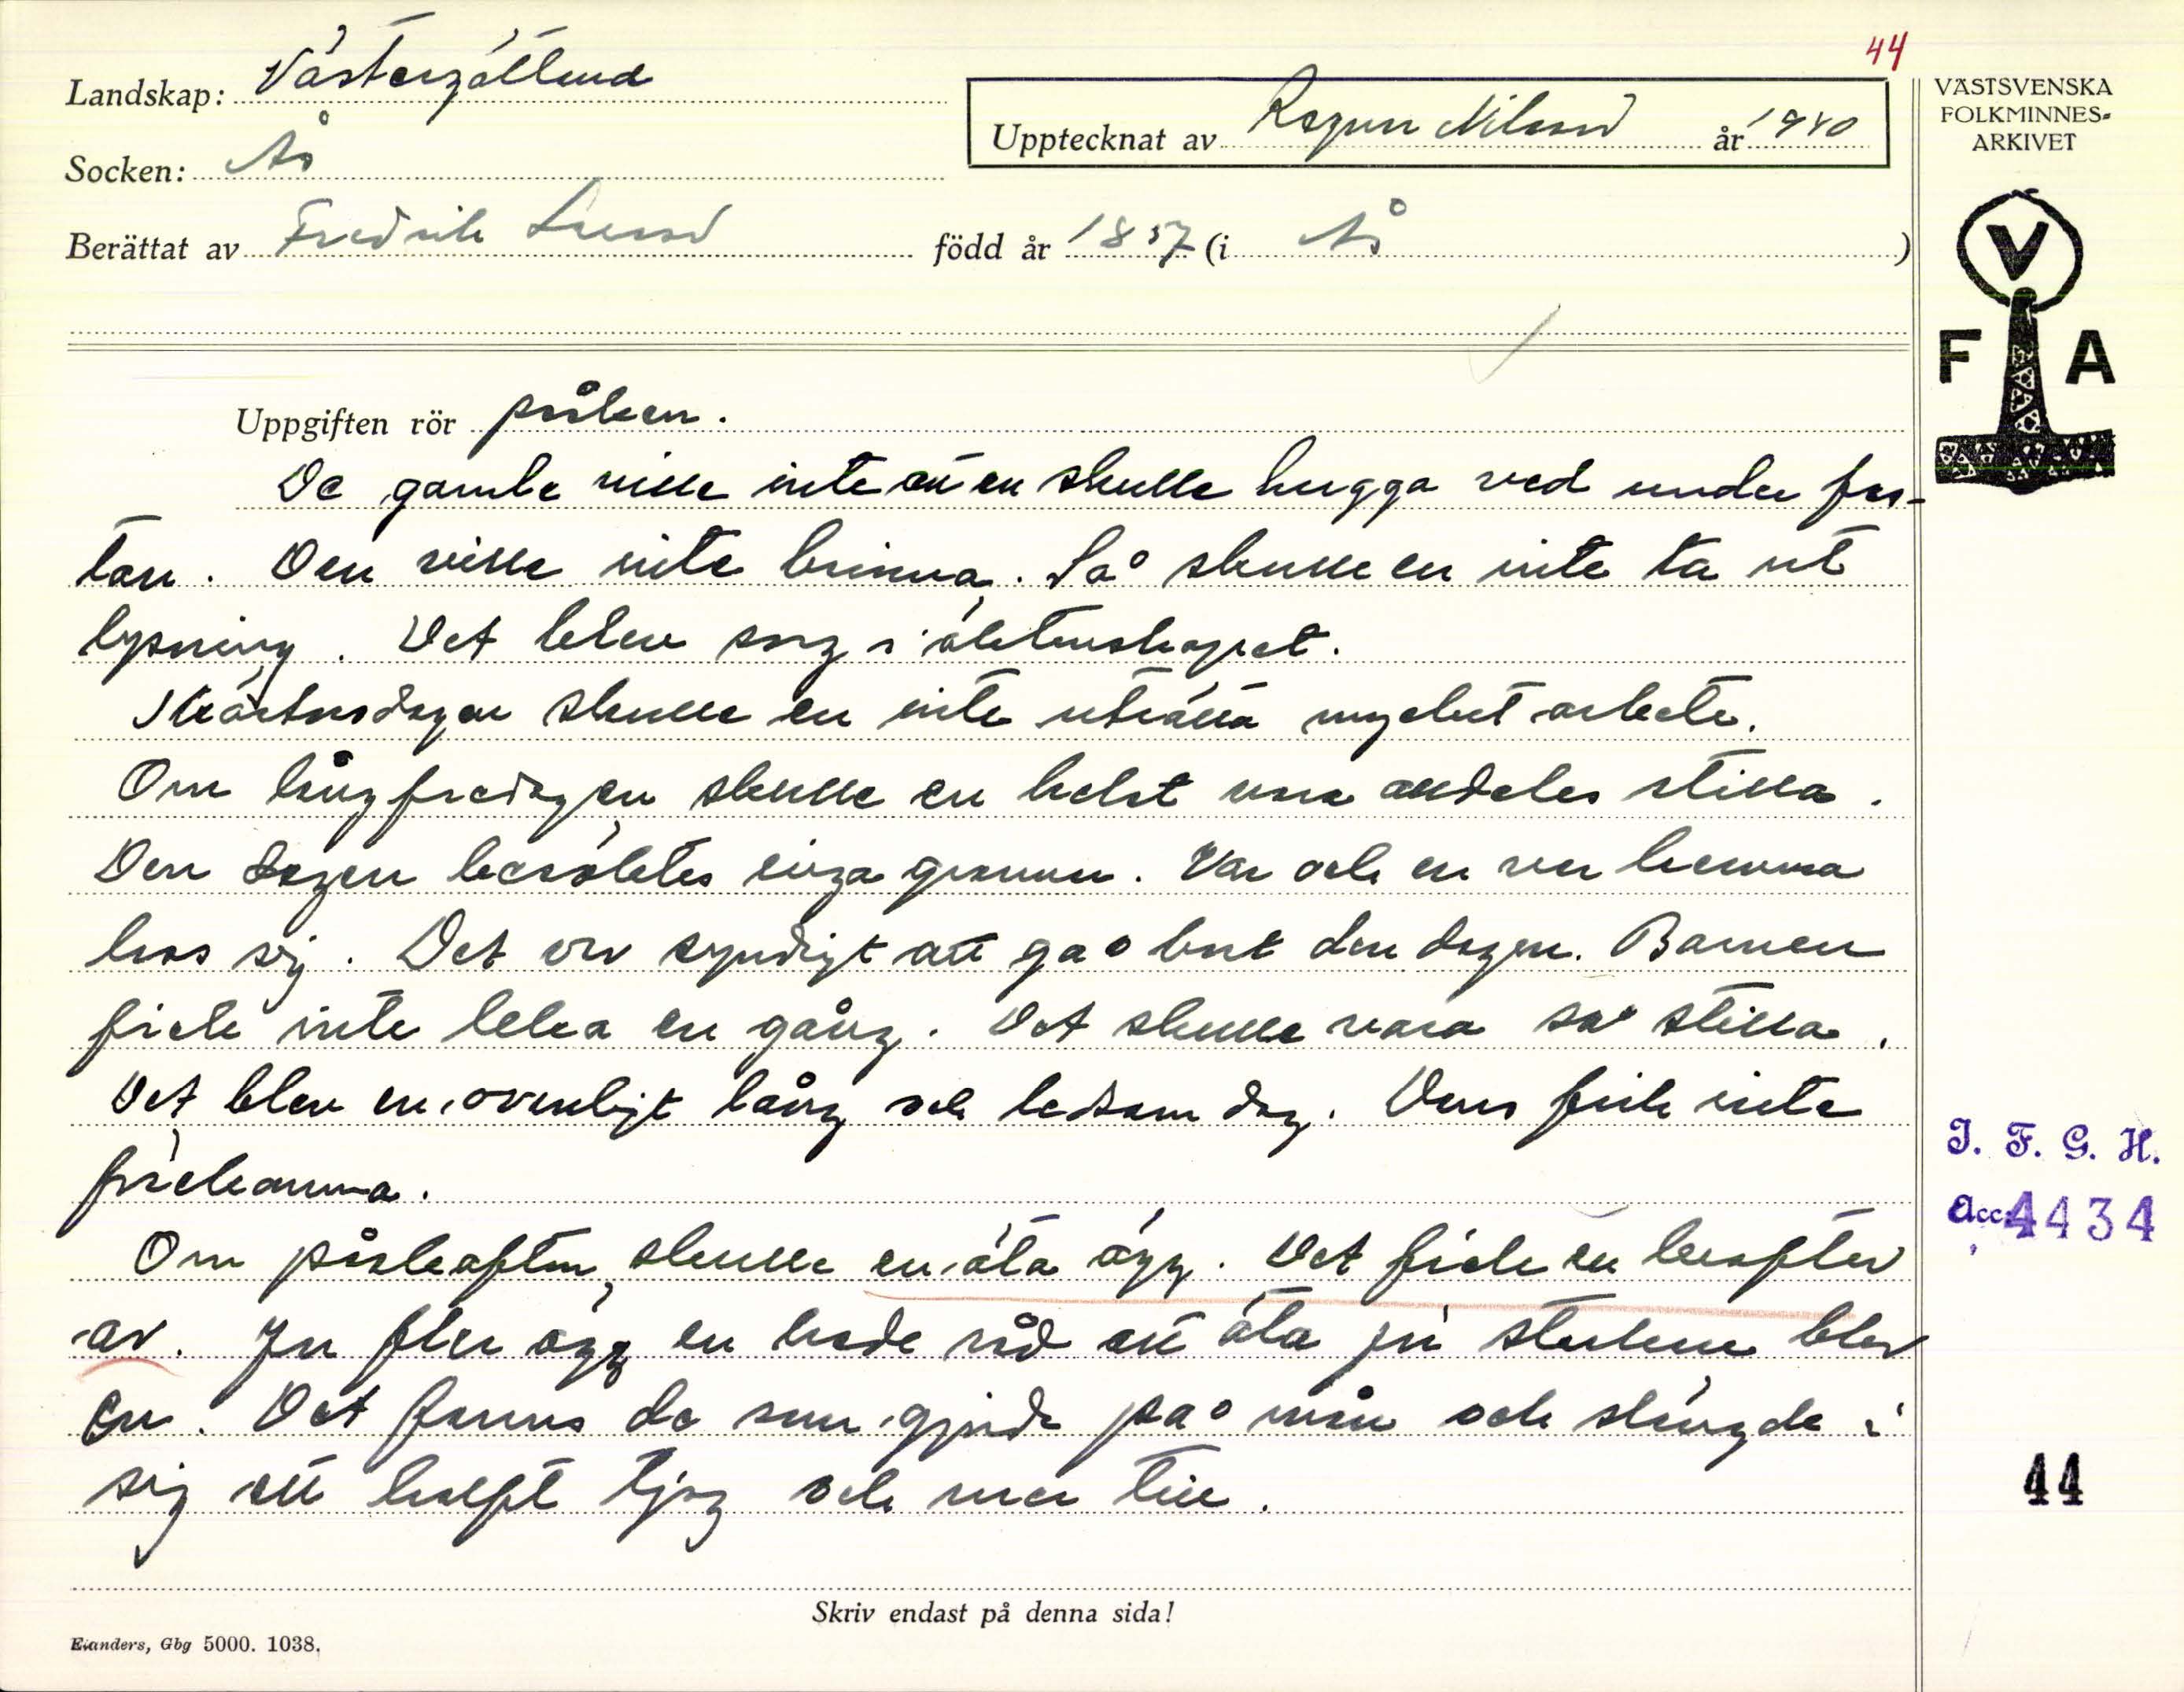 44
Landskap: Västergötland
Upptecknat av Ragnar Nilsson år 1940
VÄSTSVENSKA
FOLKMINNES-
ARKIVET
Socken: Ås
Berättat av Fredrik född år 1857 (i Ås )
V
F A
Uppgiften rör påsken.
De gamle ville inte att en skulle hugga ved under fas-
tan. Den ville inte brinna. Så skulle en inte ta ut
lysning. Det blev sorg i äktenskapet.
Skärtorsdagen skulle en inte uträtta mycket arbete.
Om långfredagen skulle en helst vara alldeles stilla.
Den dagen besöktes inga grannar. Var och en var hemma
hos sig. Det var syndigt att gå bort den dagen. Barnen
fick inte leka en gång. Det skulle vara så stilla.
Det blev en ovanligt lång och ledsam dag. Dans fick inte
förekomma.
Om påskafton skulle en äta ägg. Det fick en krafter
av. Ju fler ägg en hade råd att äta ju starkare blev
en. Det fanns de som gjorde på mån och slängde i
sig ett halft tjog och mer till.
J. F. G. H.
Acc. 4434
44
Skriv endast på denna sida!
Elanders, Gbg 5000. 1038.